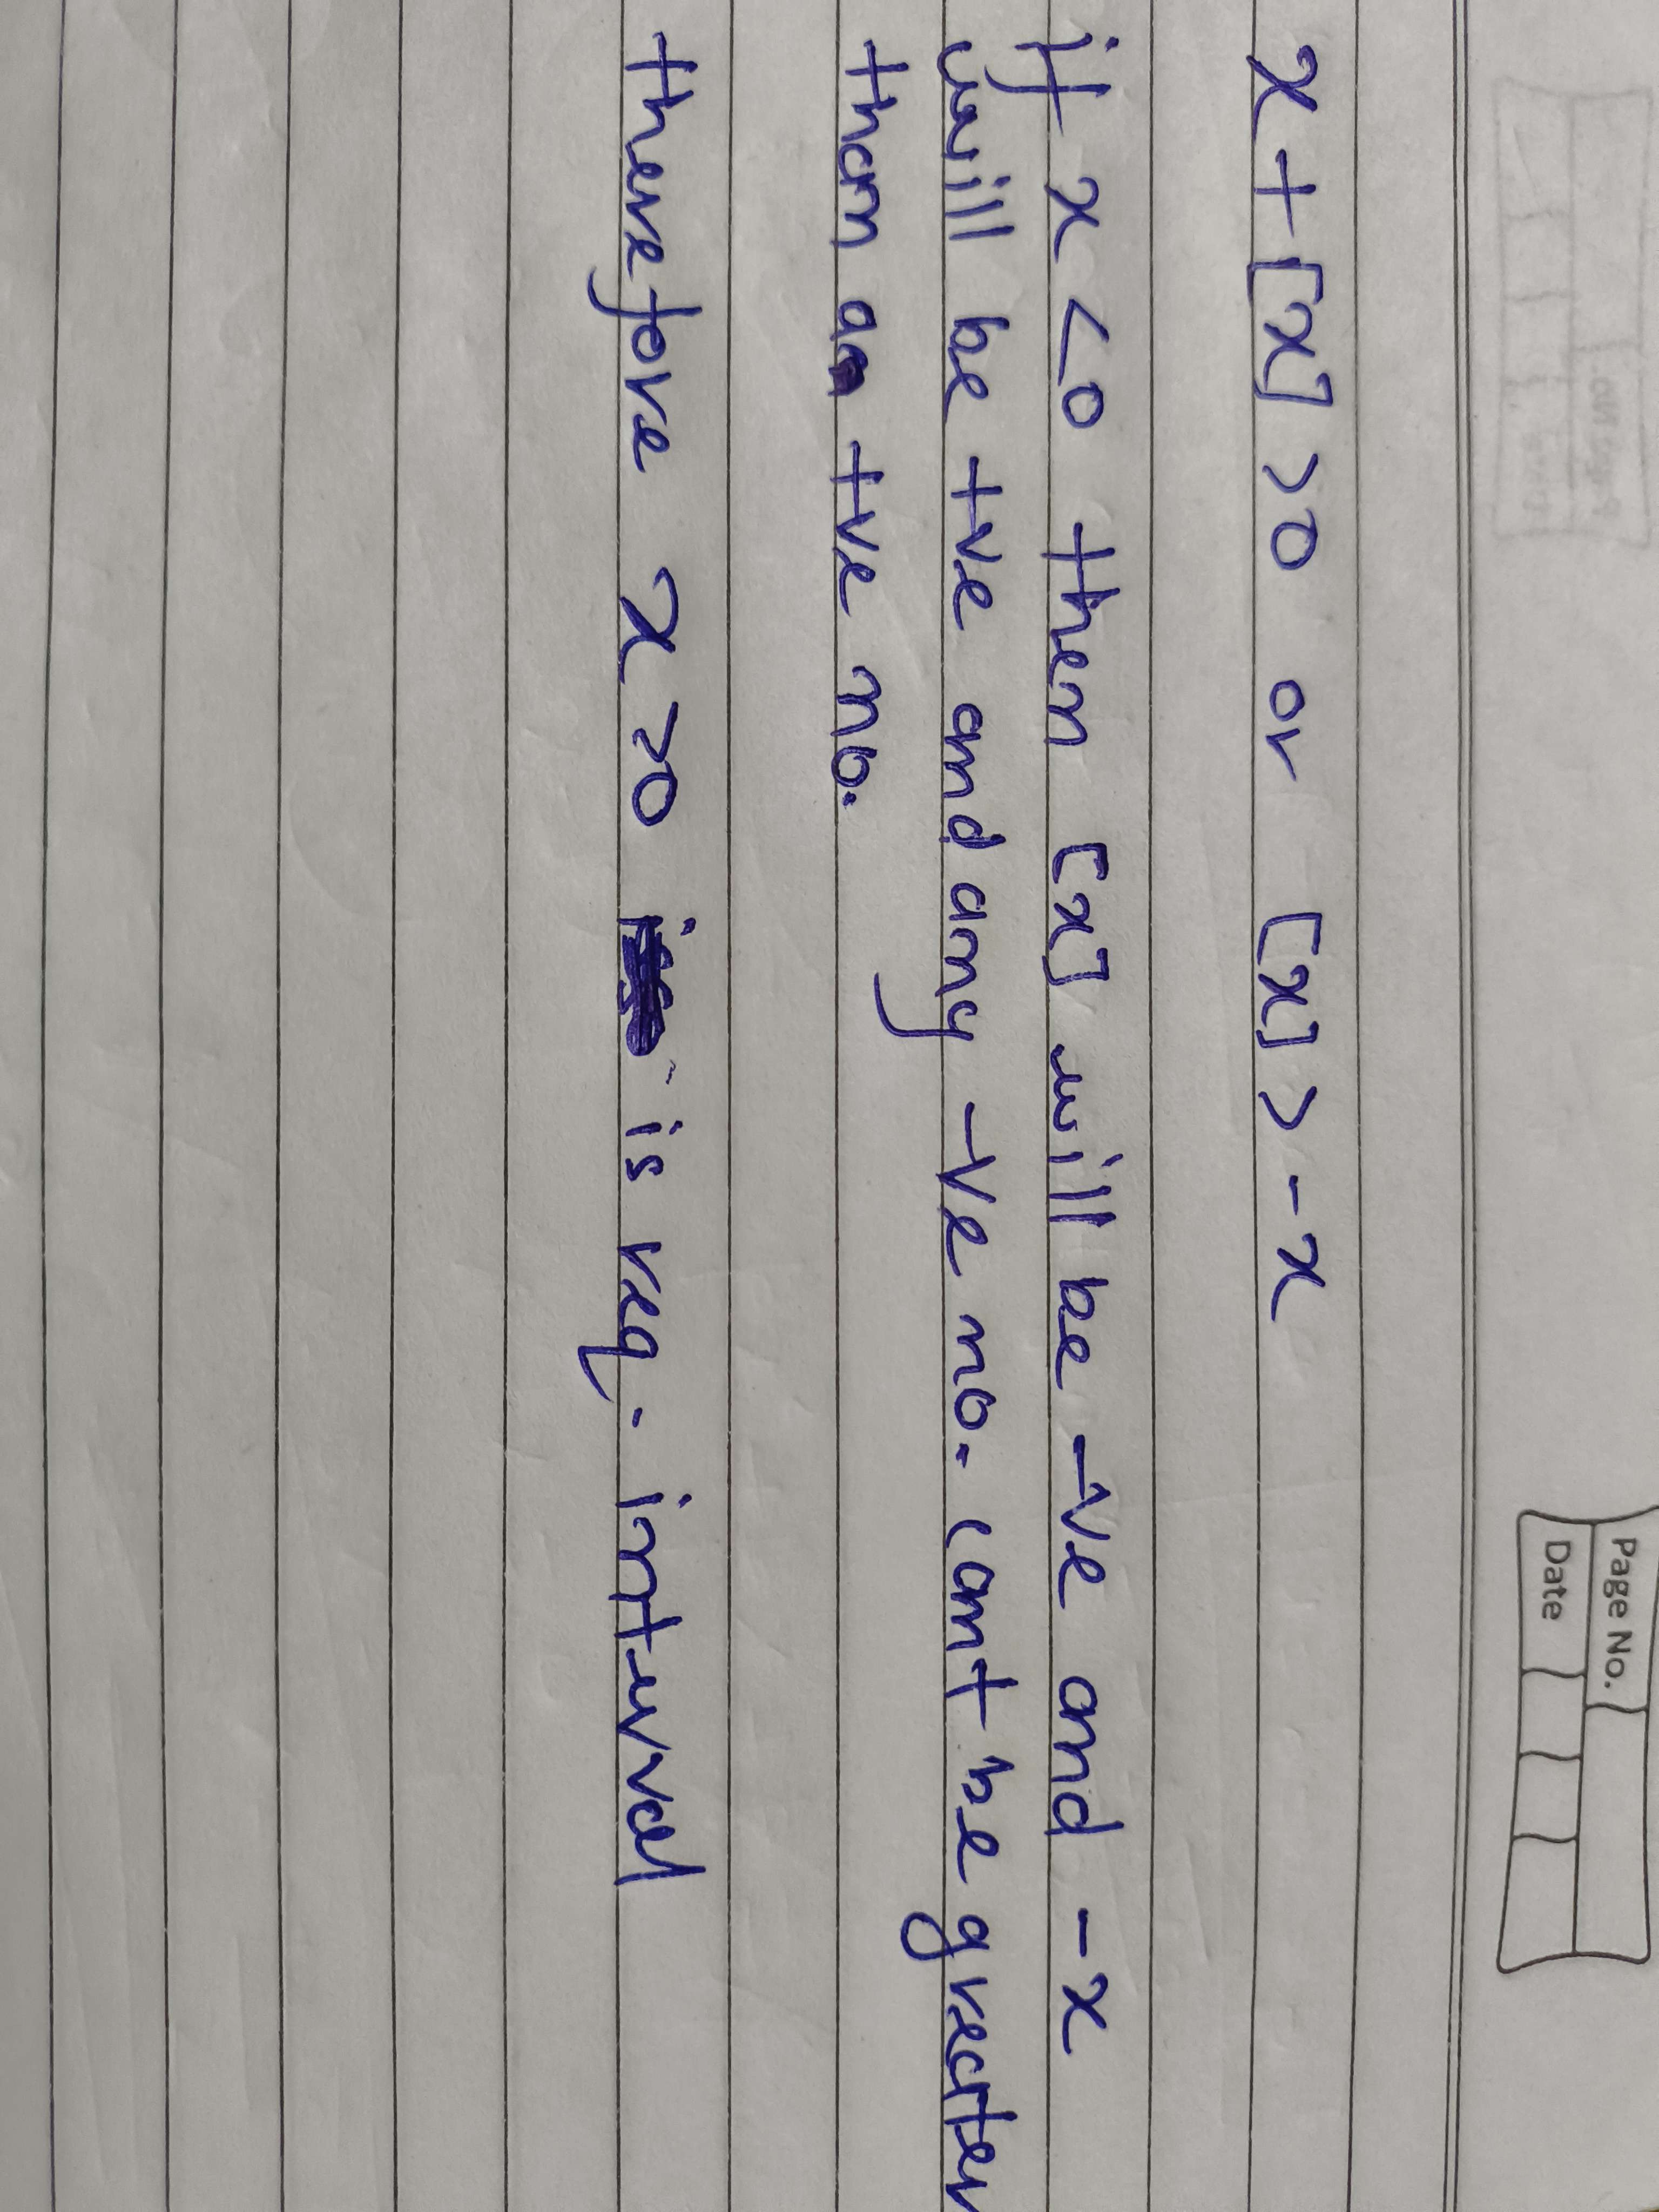 Page No.
Date
x + [x] > 0 or [x] > -x
if x < 0 then [x] will be -ve and -x
will be +ve and any -ve no. cant be greater
than a +ve no.
therefore x > 0 is req. interval